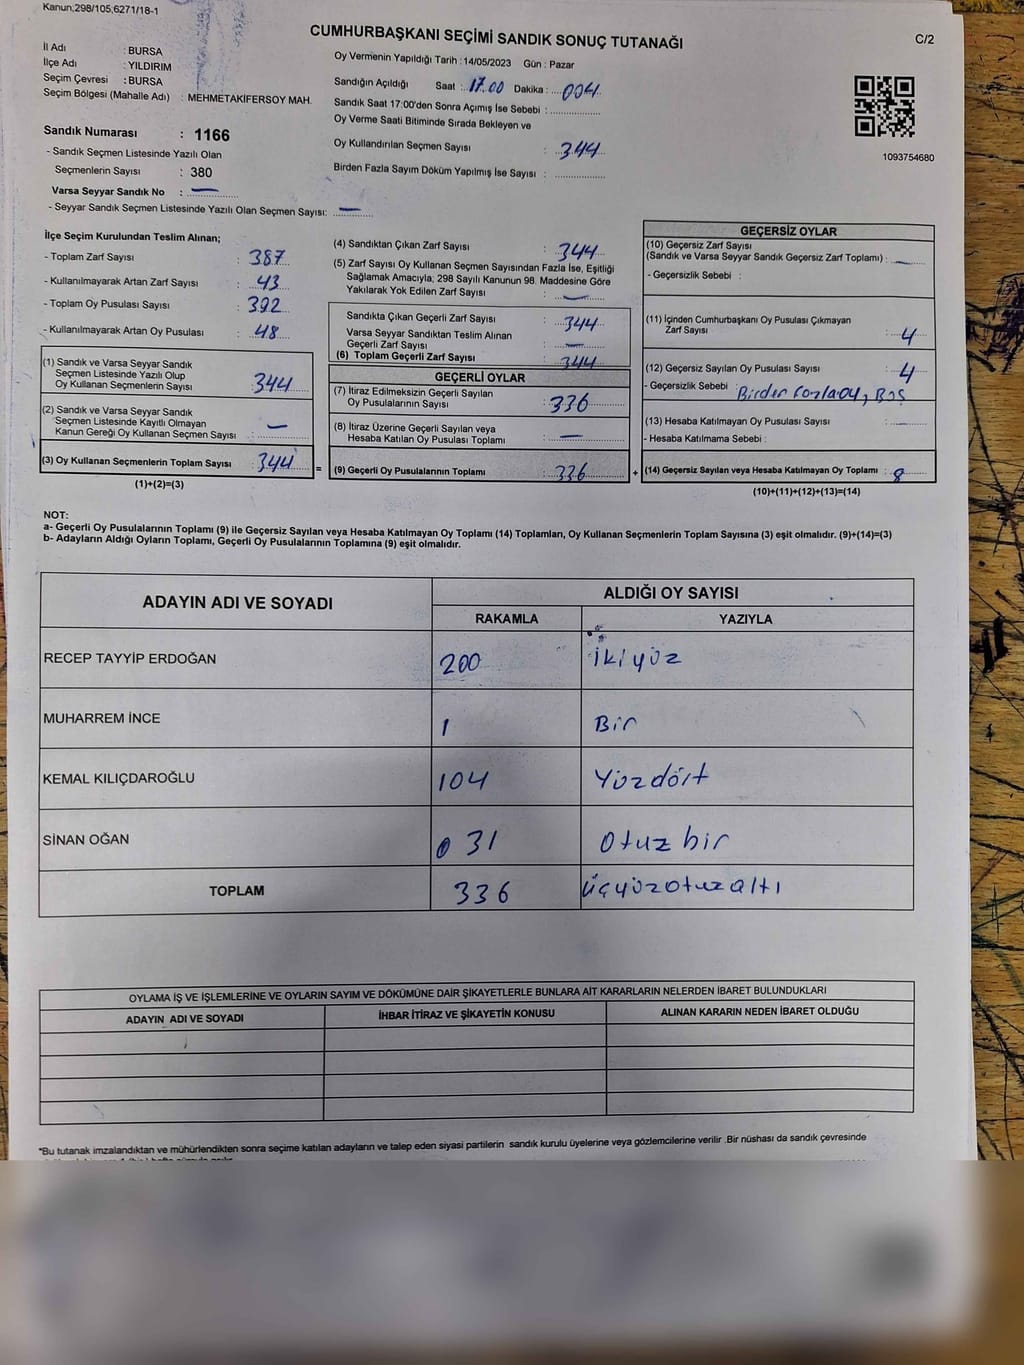 Kanun;298/105,6271/18-1
CUMHURBAŞKANI SEÇİMİ SANDIK SONUÇ TUTANAĞI
C/2
İl Adı : BURSA
İlçe Adı : YILDIRIM
Seçim Çevresi : BURSA
Seçim Bölgesi (Mahalle Adı) : MEHMETAKİFERSOY MAH.
Sandık Numarası : 1166
- Sandık Seçmen Listesinde Yazılı Olan
Seçmenlerin Sayısı : 380
Varsa Seyyar Sandık No : —
- Seyyar Sandık Seçmen Listesinde Yazılı Olan Seçmen Sayısı: —
Oy Vermenin Yapıldığı Tarih : 14/05/2023 Gün : Pazar
Sandığın Açıldığı Saat : 17.00 Dakika : 004
Sandık Saat 17:00'den Sonra Açımış İse Sebebi :
Oy Verme Saati Bitiminde Sırada Bekleyen ve
Oy Kullandırılan Seçmen Sayısı : 344
Birden Fazla Sayım Döküm Yapılmış İse Sayısı :
1093754680
İlçe Seçim Kurulundan Teslim Alınan;
- Toplam Zarf Sayısı : 387
- Kullanılmayarak Artan Zarf Sayısı : 43
- Toplam Oy Pusulası Sayısı : 392
- Kullanılmayarak Artan Oy Pusulası : 48
(1) Sandık ve Varsa Seyyar Sandık
Seçmen Listesinde Yazılı Olup
Oy Kullanan Seçmenlerin Sayısı : 344
(2) Sandık ve Varsa Seyyar Sandık
Seçmen Listesinde Kayıtlı Olmayan
Kanun Gereği Oy Kullanan Seçmen Sayısı : —
(3) Oy Kullanan Seçmenlerin Toplam Sayısı : 344 =
(1)+(2)=(3)
(4) Sandıktan Çıkan Zarf Sayısı : 344
(5) Zarf Sayısı Oy Kullanan Seçmen Sayısından Fazla İse, Eşitliği
Sağlamak Amacıyla; 298 Sayılı Kanunun 98. Maddesine Göre
Yakılarak Yok Edilen Zarf Sayısı : —
Sandıkta Çıkan Geçerli Zarf Sayısı : 344
Varsa Seyyar Sandıktan Teslim Alınan
Geçerli Zarf Sayısı : —
(6) Toplam Geçerli Zarf Sayısı : 344
GEÇERLİ OYLAR
(7) İtiraz Edilmeksizin Geçerli Sayılan
Oy Pusulalarının Sayısı : 336
(8) İtiraz Üzerine Geçerli Sayılan veya
Hesaba Katılan Oy Pusulası Toplamı : —
(9) Geçerli Oy Pusulalarının Toplamı : 336 +
GEÇERSİZ OYLAR
(10) Geçersiz Zarf Sayısı
(Sandık ve Varsa Seyyar Sandık Geçersiz Zarf Toplamı) : —
- Geçersizlik Sebebi :
(11) İçinden Cumhurbaşkanı Oy Pusulası Çıkmayan
Zarf Sayısı : 4
(12) Geçersiz Sayılan Oy Pusulası Sayısı : 4
- Geçersizlik Sebebi : Birden Fazla oy, Boş
(13) Hesaba Katılmayan Oy Pusulası Sayısı : —
- Hesaba Katılmama Sebebi :
(14) Geçersiz Sayılan veya Hesaba Katılmayan Oy Toplamı : 8
(10)+(11)+(12)+(13)=(14)
NOT:
a- Geçerli Oy Pusulalarının Toplamı (9) ile Geçersiz Sayılan veya Hesaba Katılmayan Oy Toplamı (14) Toplamları, Oy Kullanan Seçmenlerin Toplam Sayısına (3) eşit olmalıdır. (9)+(14)=(3)
b- Adayların Aldığı Oyların Toplamı, Geçerli Oy Pusulalarının Toplamına (9) eşit olmalıdır.
ADAYIN ADI VE SOYADI
ALDIĞI OY SAYISI
RAKAMLA YAZIYLA
RECEP TAYYİP ERDOĞAN 200 İkiyüz
MUHARREM İNCE 1 Bir
KEMAL KILIÇDAROĞLU 104 Yüzdört
SİNAN OĞAN 031 Otuz bir
TOPLAM 336 üçyüzotuzaltı
OYLAMA İŞ VE İŞLEMLERİNE VE OYLARIN SAYIM VE DÖKÜMÜNE DAİR ŞİKAYETLERLE BUNLARA AİT KARARLARIN NELERDEN İBARET BULUNDUKLARI
ADAYIN ADI VE SOYADI İHBAR İTİRAZ VE ŞİKAYETİN KONUSU ALINAN KARARIN NEDEN İBARET OLDUĞU
*Bu tutanak imzalandıktan ve mühürlendikten sonra seçime katılan adayların ve talep eden siyasi partilerin sandık kurulu üyelerine veya gözlemcilerine verilir .Bir nüshası da sandık çevresinde